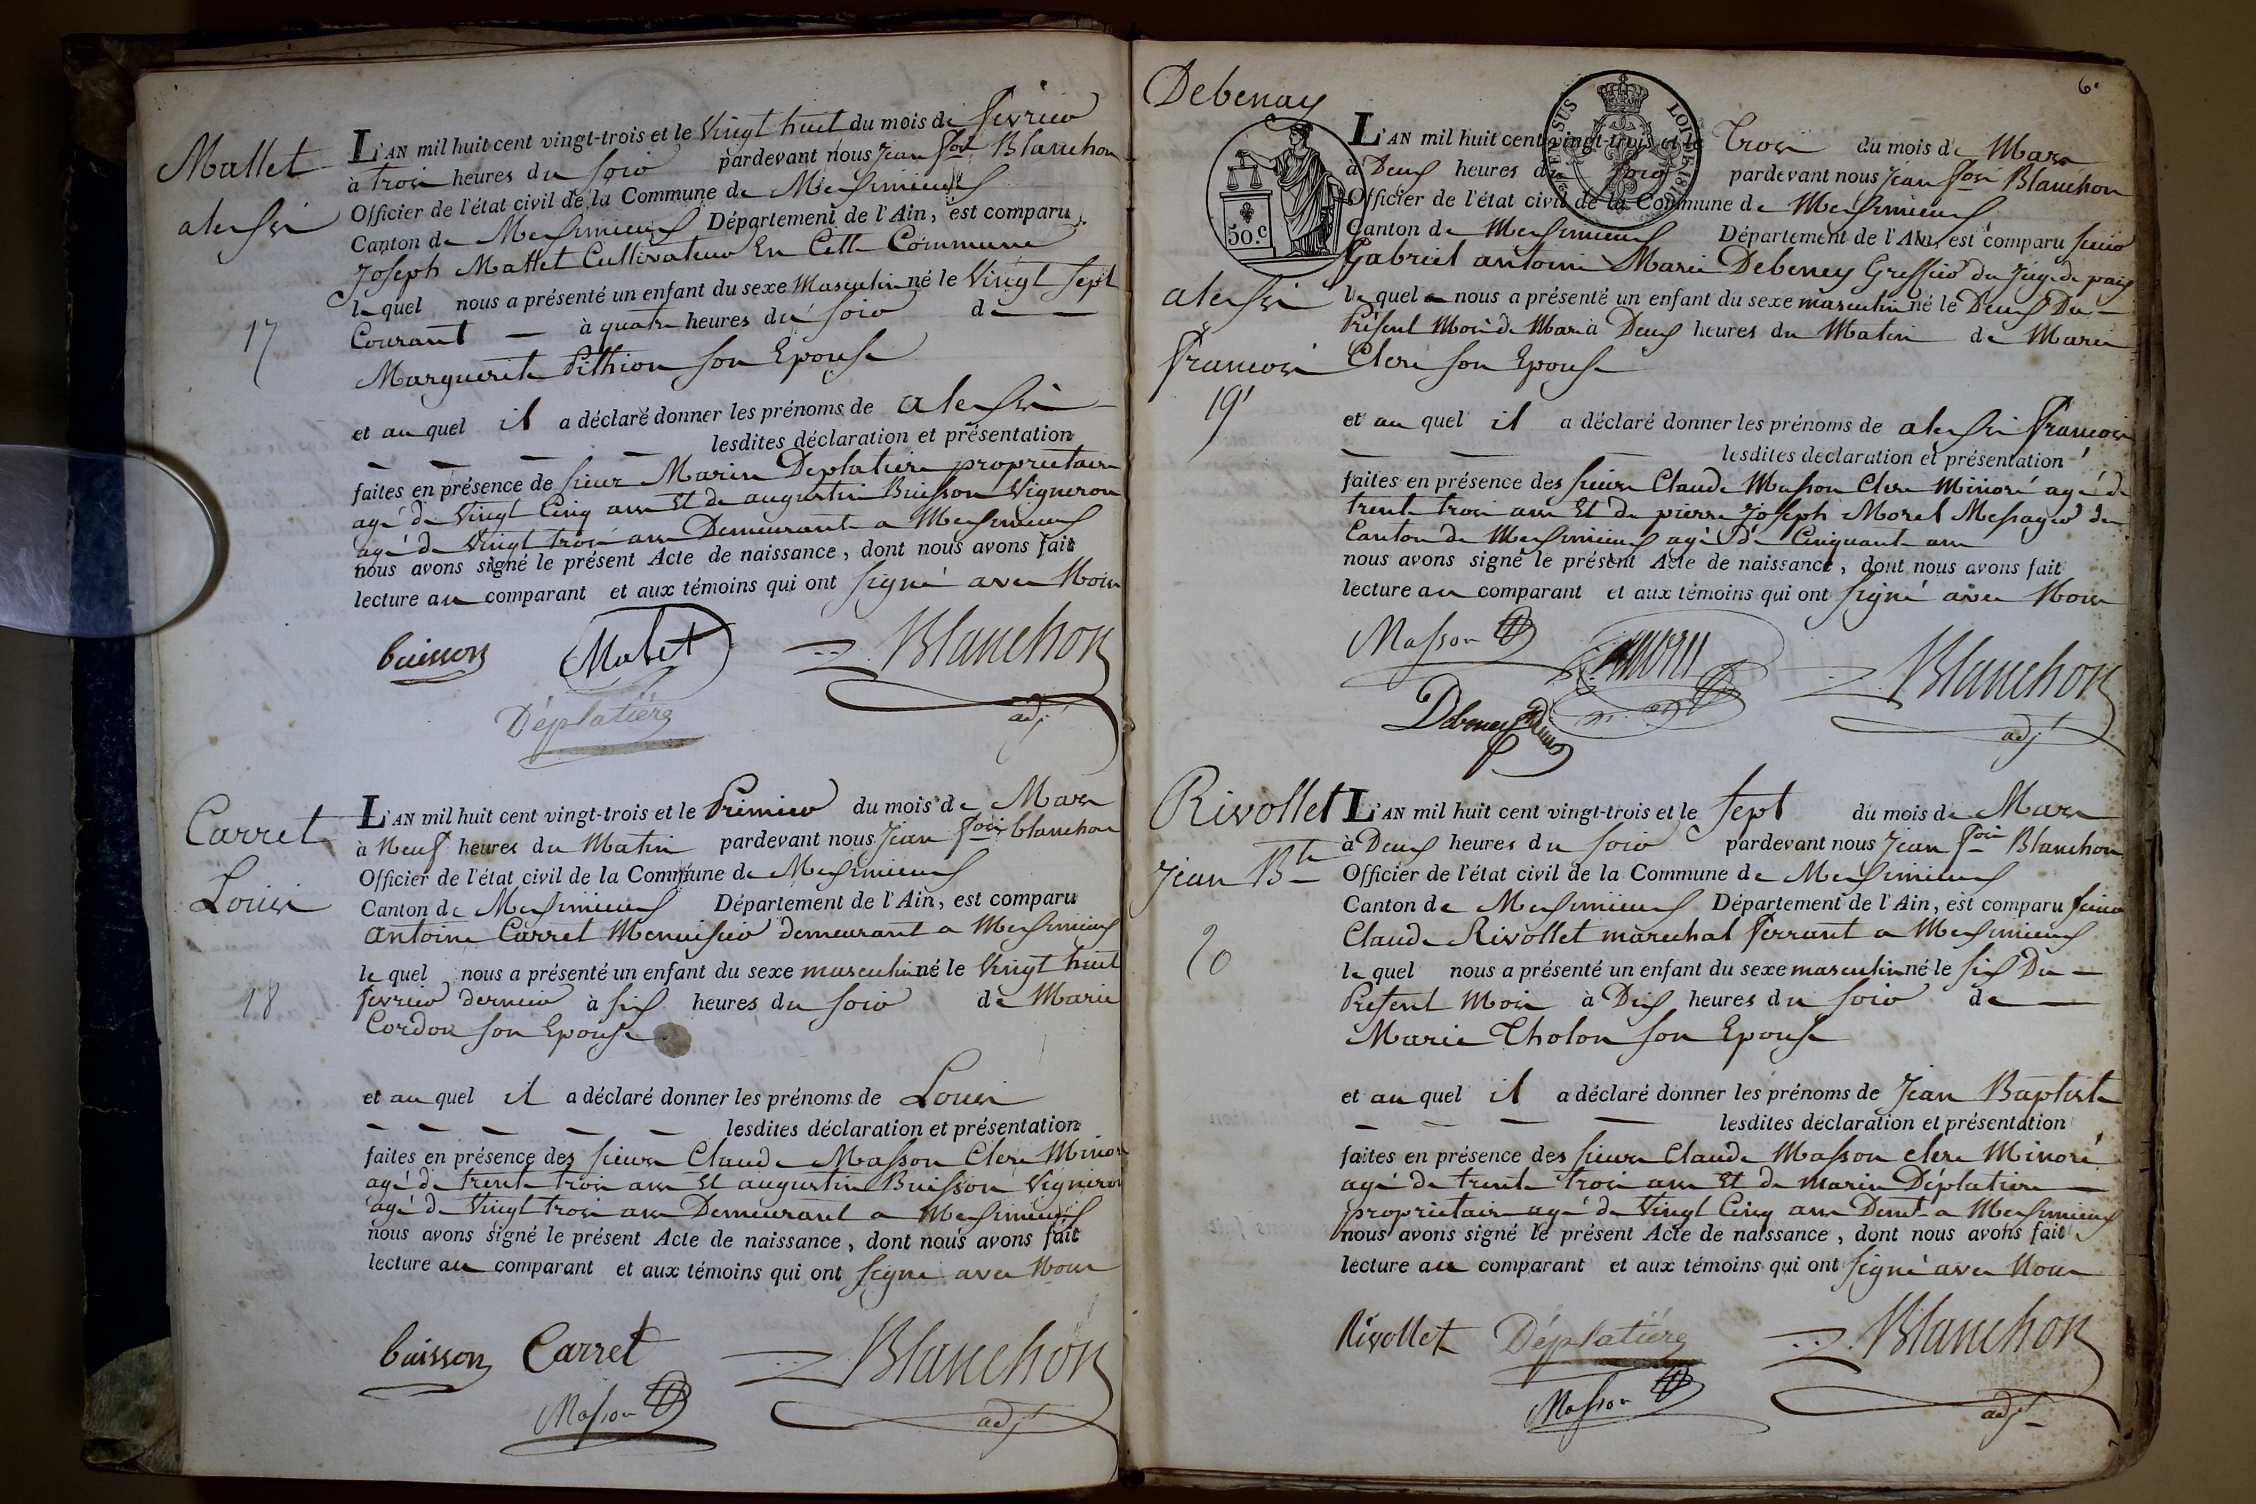 Mallet
alexsi
17
L'AN mil huit cent vingt-trois et le Vingt huit du mois de fevrier
à trois heures du soir pardevant nous Jean fois Blanchon
Officier de l'état civil de la Commune de Meximieux
Canton de Meximieux Département de l'Ain, est comparu
Joseph Mallet Cultivateur En Cette Commune
le quel nous a présenté un enfant du sexe Masculin né le Vingt Sept
Courant — à quatre heures du soir de —
Marguerite Pithion son Epouse
et au quel il a déclaré donner les prénoms de alexsi
— — — — lesdites déclaration et présentation
faites en présence de sieur Marin Deplatiere proprietaire
agé de Vingt Cinq ans Et de augustin Buisson Vigneron
agé de Vingt trois ans Demeurants a Meximieux
nous avons signé le présent Acte de naissance, dont nous avons fait
lecture au comparant et aux témoins qui ont signé avec Nous
buisson Malet Blanchon
Déplatiére adjt
Carret
Louis
18
L'AN mil huit cent vingt-trois et le Premier du mois de Mars
à Neuf heures du Matin pardevant nous Jean fois blanchon
Officier de l'état civil de la Commune de Meximieux
Canton de Meximieux Département de l'Ain, est comparu
antoine Carret Menuisier demeurant a Meximieux
le quel nous a présenté un enfant du sexe masculin né le Vingt huit
fevrier dernier à six heures du soir de Marie
Cordon son Epouse
et au quel il a déclaré donner les prénoms de Louis
— — — — — lesdites déclaration et présentation
faites en présence des sieurs Claude Masson Clerc Minoré
agé de trente trois ans Et augustin Buisson Vigneron
agé de Vingt trois ans Demeurant a Meximieux
nous avons signé le présent Acte de naissance, dont nous avons fait
lecture au comparant et aux témoins qui ont signé avec Nous
buisson Carret Blanchon
Masson adjt
6.
Debenay
alexsi
francois
19
50.C
LOI DE 181
L'AN mil huit cent vingt-trois et le Trois du mois de Mars
à Deux heures du soir pardevant nous Jean fois Blanchon
Officier de l'état civil de la Commune de Meximieux
Canton de Meximieux Département de l'Ain, est comparu sieur
Gabriel antoine Marie Debeney Greffier du Juge de paix
le quel nous a présenté un enfant du sexe masculin né le Deux Du —
Présent Mois de Mars à Deux heures du Matin de Marie
Clerc son Epouse
et au quel il a déclaré donner les prénoms de alexsi francois
— — — — lesdites déclaration et présentation
faites en présence des sieurs Claude Masson Clerc Minoré agé de
trente trois ans Et de pierre Joseph Morel Messager du
Canton de Meximieux agé de Cinquante ans
nous avons signé le présent Acte de naissance, dont nous avons fait
lecture au comparant et aux témoins qui ont signé avec Nous
Masson Blanchon
Debeney adjt
Rivollet
Jean Bte
20
L'AN mil huit cent vingt-trois et le sept du mois de Mars
à Deux heures du soir pardevant nous Jean fois Blanchon
Officier de l'état civil de la Commune de Meximieux
Canton de Meximieux Département de l'Ain, est comparu sieur
Claude Rivollet marechal ferrant a Meximieux
le quel nous a présenté un enfant du sexe masculin né le six Du —
Présent Mois à Dix heures du soir de —
Marie Tholon son Epouse
et au quel il a déclaré donner les prénoms de Jean Baptiste
— — — — lesdites déclaration et présentation
faites en présence des sieurs Claude Masson clerc Minoré
agé de trente trois ans Et de marin Déplatiere —
proprietaire agé de Vingt Cinq ans Demt a Meximieux
nous avons signé le présent Acte de naissance, dont nous avons fait
lecture au comparant et aux témoins qui ont signé avec Nous
Rivollet Déplatiére Blanchon
Masson adjt